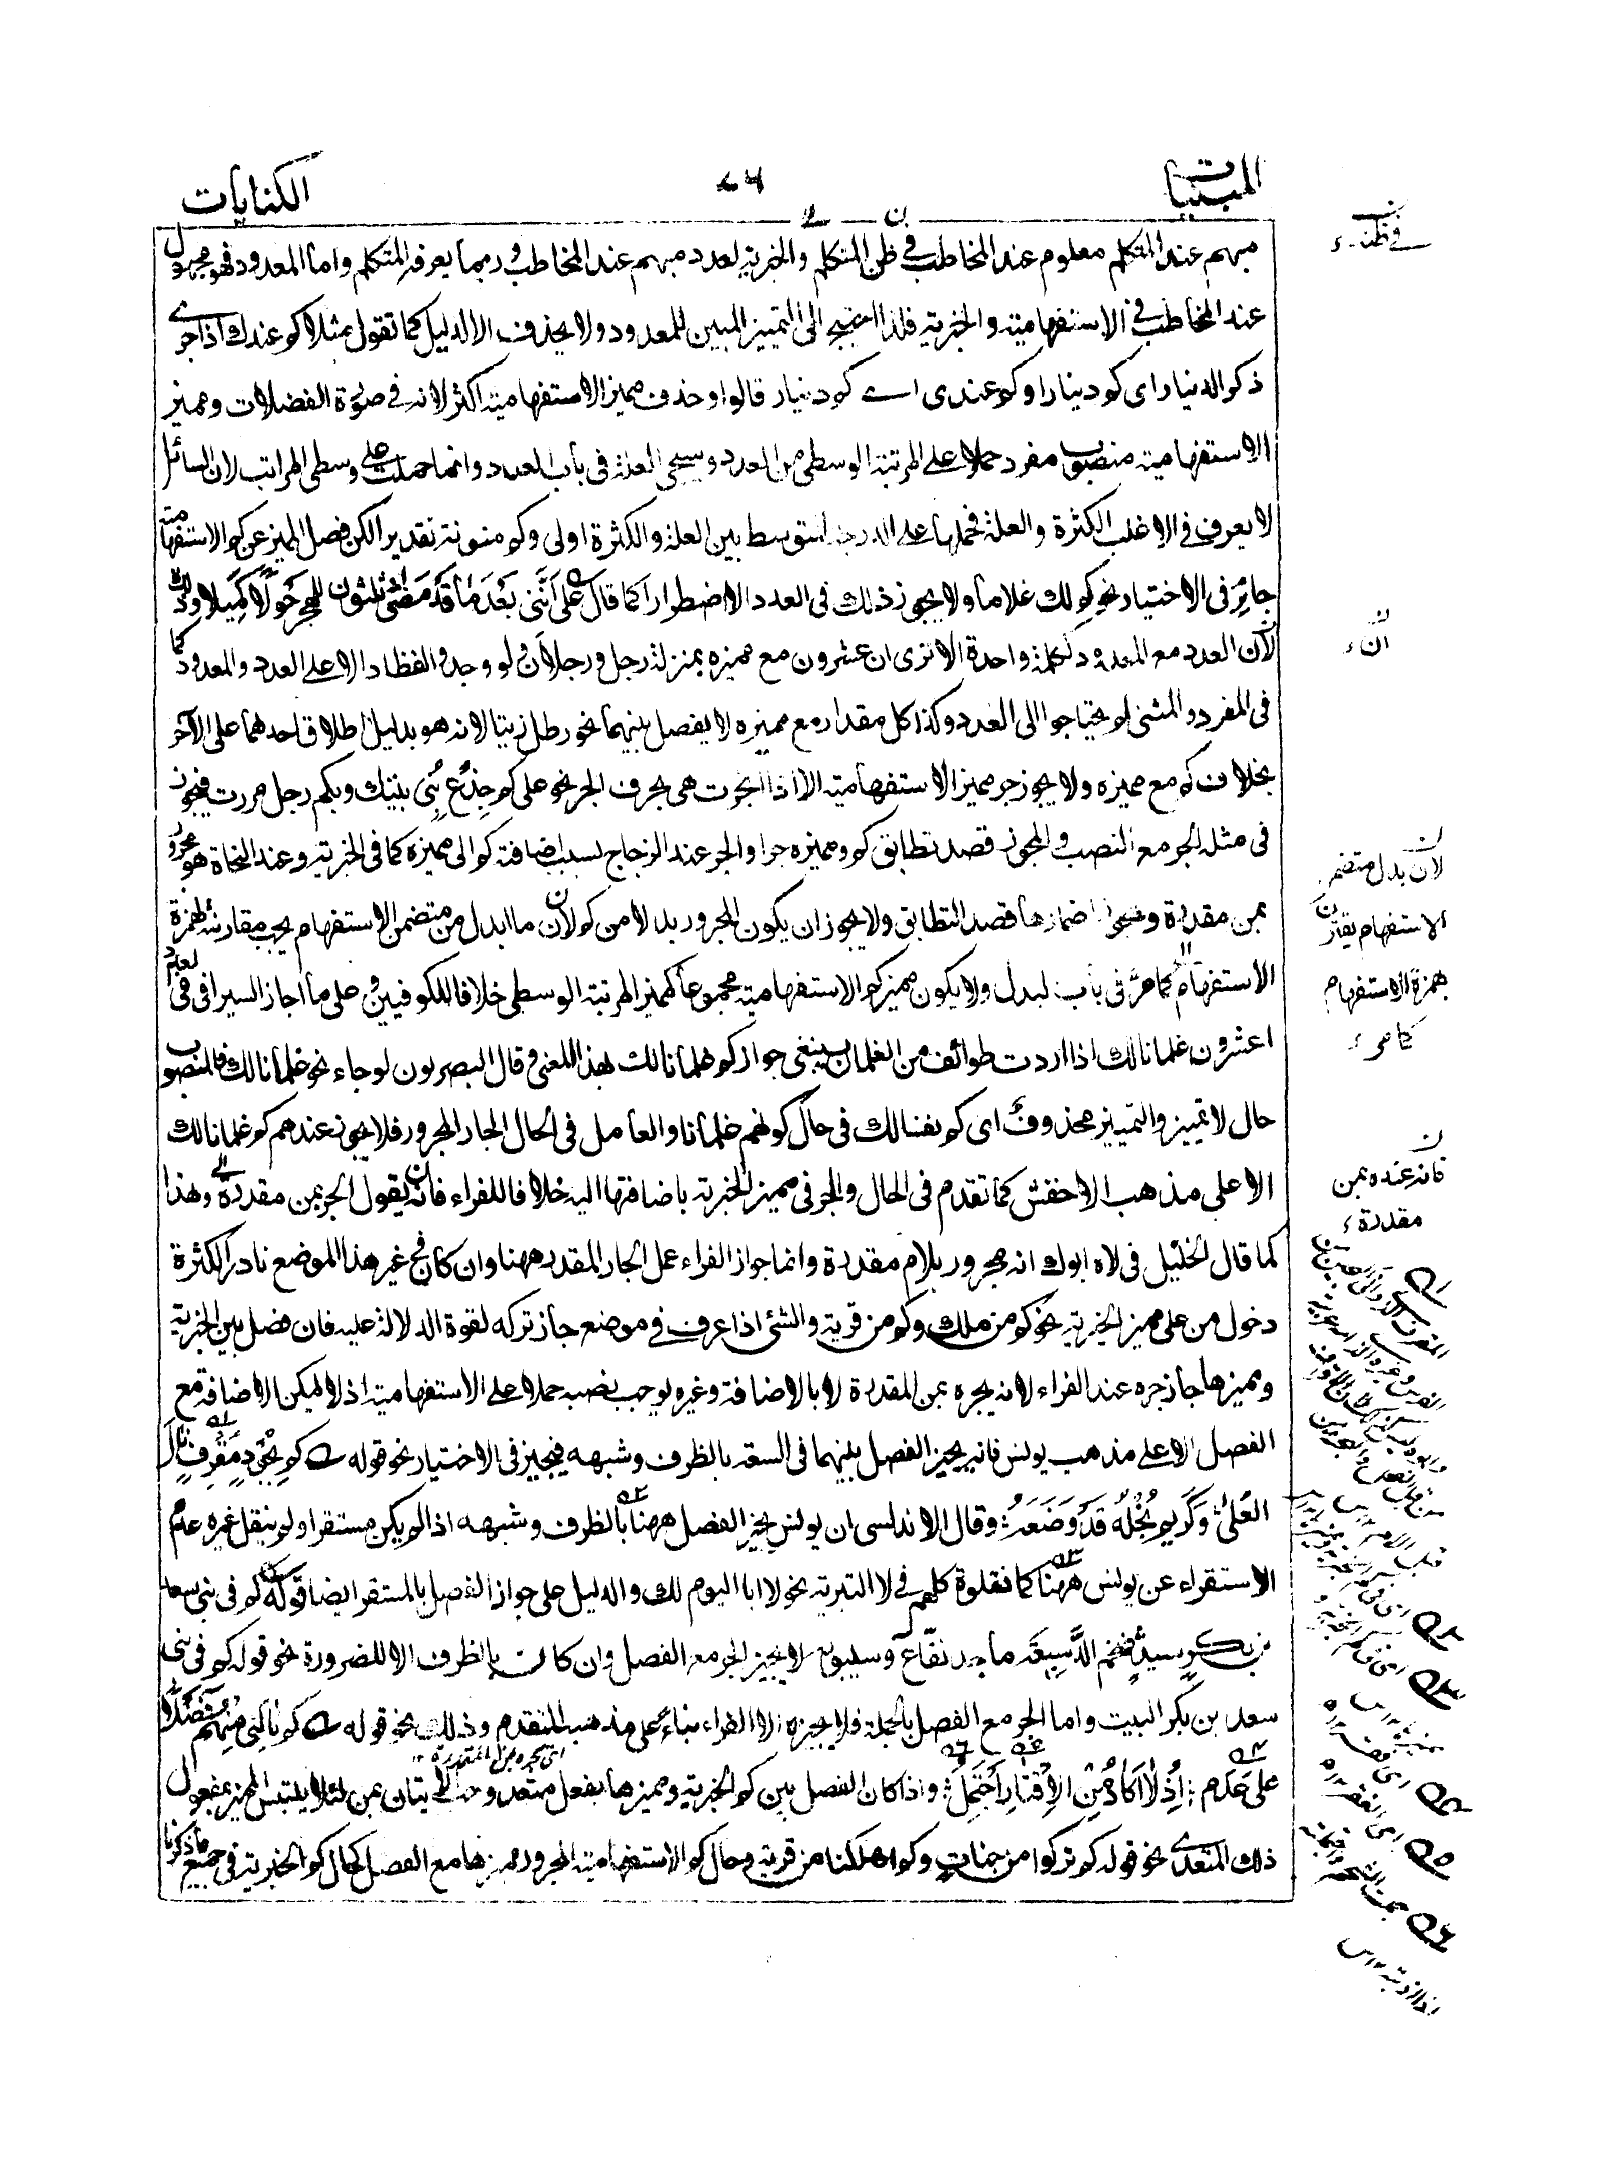 المبنيات
٧٦
الكنايات
مبهم عند المتكلم معلوم عند المخاطب في ظن المتكلم والخبرية لعدد مبهم عند المخاطب وربما يعرفه المتكلم واما المعدود فهو مجهول
عند المخاطب في الاستفهامية والخبرية فلذا احتيج الى التمييز المبين للمعدود ولا يحذف الا لدليل كما تقول مثلا كم عندك اذا جرى
ذكر الدنيار اى كم دينارا وكم عندى اے كم دنيار قالوا وحذف مميز الاستفهامية اكثر لانه في صورة الفضلات ومميز
الاستفهامية منصوب مفرد حملا على المرتبة الوسطى من العدد وسيجى العلة فى باب العدد وانما حملت على وسطى المراتب لان السائل
لا يعرف في الاغلب الكثرة والعلة فحملها على الدرجة المتوسط بين العلة والكثرة اولى وكم منونة تقدير الكن فصل المميز عن كم الاستفهامية
جائز فى الاختيار نحو كم لك غلاما ولا يجوز ذلك فى العدد الا اضطرارا كما قال ؎ عَلىٰ اَنَّنى بَعْدَ مٰا قَدْ مَضىٰ ثلثون للهجر حَوْلًا كَمِيلا وذلك
لان العدد مع المعدود كلمة واحدة الا ترى ان عشرون مع مميزه بمنزلة رجل ورجلان ولو وجدوا لفظا دالا على العدد والمعدود كما
فى المفرد والمثنى لم يحتاجوا الى العدد وكذا كل مقدار مع مميزه لا يفصل بينهما نحو رطل زيتا لانه هو بدليل اطلاق احدهما على الآخر
بخلاف كم مع مميزه ولا يجوز جر مميز الاستفهامية الا اذا انجرت هى بحرف الجر نحو على كم جِذْعٍ بُنِىَ بيتك وبكم رجل مررت فيجوز
فى مثله الجر مع النصب والمجوز قصد تطابق كم ومميزه جرا والجر عند الزجاج بسبب اضافة كم الى مميزه كما فى الخبرية وعند النحاة هو مجرور
بمن مقدرة اضمارها قصد التطابق ولا يجوز ان يكون المجرور بدلا من كم لان ما ابدل من متضمن الاستفهام يجب مقارنته لهمزة
الاستفهام كما مرّ فى باب البدل ولا يكون مميز كم الاستفهامية مجموعا كمميز المرتبة الوسطى خلافا للكوفيين وعلى ما اجاز السيرافى فى لعدد
اعشرون غلمانا لك اذا اردت طوائف من الغلمان ينبغى جواز كم غلمانا لك بهذا المعنى وقال البصريون لو جاء نحو غلمانا لك فالمنصوب
حال لا تمييز والتمييز محذوف اى كم نفسا لك فى حال كونهم غلمانا والعامل فى الحال الجار المجرور فلا يجوز عندهم كم غلمانا لك
الا على مذهب الاخفش كما تقدم فى الحال والجر فى مميز الخبرية باضافتها اليه خلافا للفراء فانه يقول الجر بمن مقدرة وهذا
كما قال الخليل فى لاه ابوك انه مجرور بلام مقدرة وانما جواز الفراء عمل الجار المقدر ههنا وان كان فى غير هذا الموضع نادر الكثرة
دخول من على مميز الخبرية نحو كم من ملك وكم من قرية والشئ اذا عرف فى موضع جاز تركه لقوة الدلالة عليه فان فصل بين الخبرية
ومميزها جاز جره عند الفراء لانه يجره بمن المقدرة لا بالاضافة وغيره يوجب نصبه حملا على الاستفهامية اذ لا يمكن الاضافة مع
الفصل الا على مذهب يونس فانه يجيز الفصل بينهما فى السعة بالظرف وشبهه فيجيز فى الاختيار نحو قوله ؎ كم بِجُودٍ مُقْرِفٍ نٰالَ
العُلىٰ وَكَرِيم بُخْلُهُ قَدْ وَضَعَهُ وقال الاندلسى ان يونس يجيز الفصل ههنا بالظرف وشبهه اذا لم يكن مستقرا ولم ينقل غيره عدم
الاستقراء عن يونس ههنا كما نقلوه كلهم فى لا التبرية نحو لا ابا اليوم لك والدليل على جواز الفصل بالمستقر ايضا قوله ؎ كم فى بنى سعد
بن بكر سيدٍ ضخم الدَّسِيعَة ماجد نفّاع وسيبويه لا يجيز الجر مع الفصل وان كان بالظرف الا للضرورة نحو قوله كم فى بنى
سعد بن بكر البيت واما الجر مع الفصل بالجملة فلا يجيزه الا الفراء بناء على مذهبه المتقدم وذلك نحو قوله ؎ كم نٰالَنِى مِنْهُم فَضْلًا
اى بجره بمن المقدرة
عَلىٰ عَدَمٍ اِذْ لٰا اَكٰادُ مِنَ الْاِقْتٰارِ اَحْتَمِلُ واذا كان الفصل بين كم الخبرية ومميزها بفعل متعد وجب الاتيان بمن لئلا يلتبس المميز بمفعول
ذلك المتعدے نحو قوله كم تركوا من جنات وكم اهلكنا من قرية وحال كم الاستفهامية المجرور مميزها مع الفصل كحال كم الخبرية فى جميع ما ذكرنا
فى ظنه
ان
لان بدل متضمن
الاستفهام يقترن
بهمزة الاستفهام
كما مر
فانه عنده بمن
مقدرة